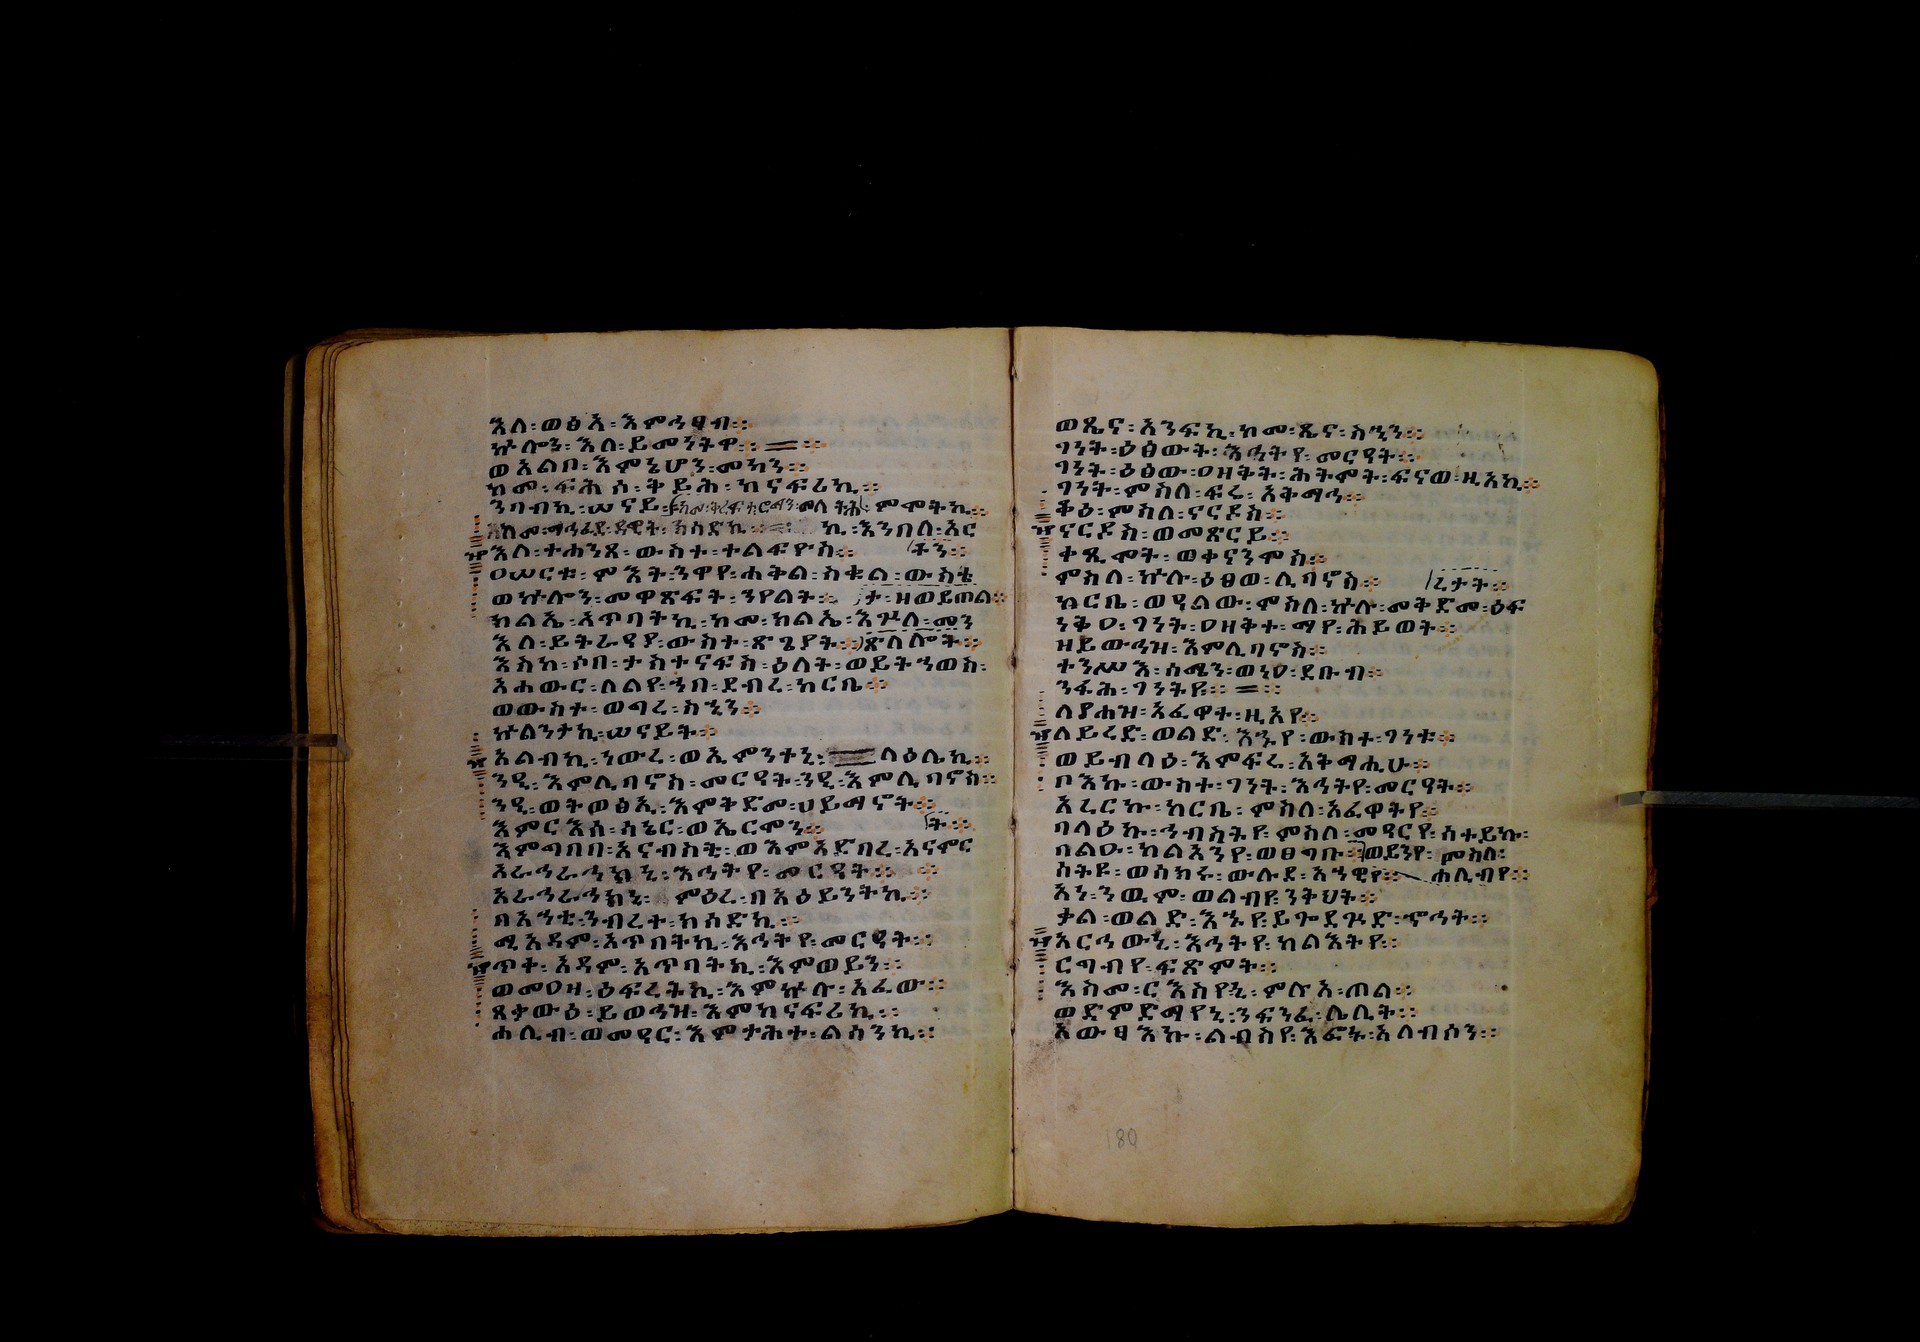 እለ፡ ወፅአ፡ እምኀፃብ።
ኵሎን፡ እለ፡ ይመንትዋ።
ወአልቦ፡ እምኔሆን፡ መካን።
ከመ፡ ፍሕሰ፡ ቅይሕ፡ ከናፍሪኪ።
ንባብኪ፡ ሠናይ፡ ምሞትኪ።
ከመ፡ ማኅፈደ፡ ዳዊት፡ ክሳድኪ። ኪ፡ እንበለ፡ አር
እለ፡ ተሐንጸ፡ ውስተ፡ ተልፍዮስ።
ዐሠርቱ፡ ምእት፡ ንዋየ፡ ሐቅል፡ ስቁል፡ ውስቴ
ወኵሎን፡ መዋጽፍት፡ ንየልት።
ክልኤ፡ አጥባትኪ፡ ከመ፡ ክልኤ፡ እጕለ፡ መን
እለ፡ ይትራዓያ፡ ውስተ፡ ጽጌያት። ጽለሎት።
እስከ፡ ሶበ፡ ታስተናፍስ፡ ዕለት፡ ወይትኀወስ፡
አሐውር፡ ለልየ፡ ኀበ፡ ደብረ፡ ከርቤ።
ወውስተ፡ ወግረ፡ ስኂን።
ኵልንታኪ፡ ሠናይት።
አልብኪ፡ ነውረ፡ ወኢምንተኒ፡ ላዕሌኪ።
ንዒ፡ እምሊባኖስ፡ መርዓት፡ ንዒ፡ እምሊባኖስ።
ንዒ፡ ወትወፅኢ፡ እምቅድመ፡ ሀይማኖት።
እምርእሰ፡ ሳኔር፡ ወኤርሞን። ት።
እምግበበ፡ አናብስት፡ ወእምአድበረ፡ አናምር
አራኅራኅክኒ፡ እኅትየ፡ መርዓት።
አራኅራኅክኒ፡ ምዕረ፡ በአዕይንትኪ።
በአሐቲ፡ ንብረተ፡ ክሳድኪ።
ሚ አዳም፡ አጥበትኪ፡ እኅትየ፡ መርዓት።
ጥቀ፡ አዳም፡ አጥባትኪ፡ እምወይን።
ወመዐዛ፡ ዕፍረትኪ፡ እምኵሉ፡ አፈው።
ጸቃውዕ፡ ይውኅዝ፡ እምከናፍሪኪ።
ሐሊብ፡ ወመዓር፡ እምታሕተ፡ ልሳንኪ።
ወጼና፡ አንፍኪ፡ ከመ፡ ጼና፡ ስኂን።
ገነት፡ ዕፅውት፡ እኅትየ፡ መርዓት።
ገነት፡ ዕፅው፡ ዐዘቅት፡ ሕትምት፡ ፍናወ፡ ዚአኪ።
ገነት፡ ምስለ፡ ፍሬ፡ አቅማኅ።
ቆዕ፡ ምስለ፡ ናርዶስ።
ናርዶስ፡ ወመጽርይ።
ቀጺሞት፡ ወቀናንሞስ።
ምስለ፡ ኵሉ፡ ዕፀወ፡ ሊባኖስ።
ከርቤ፡ ወዓልው፡ ምስለ፡ ኵሉ፡ መቅድመ፡ ዕፍ
ንቅዐ፡ ገነት፡ ዐዘቅተ፡ ማየ፡ ሕይወት።
ዘይውኅዝ፡ እምሊባኖስ።
ተንሥእ፡ ሰሜን፡ ወነዐ፡ ደቡብ።
ንፋሕ፡ ገነትየ።
ለያሐዝ፡ አፈዋት፡ ዚአየ።
ለይረድ፡ ወልድ፡ እኁየ፡ ውስተ፡ ገነቱ።
ወይብላዕ፡ እምፍሬ፡ አቅማሒሁ።
ቦእኩ፡ ውስተ፡ ገነት፡ እኅትየ፡ መርዓት።
አረርኩ፡ ከርቤ፡ ምስለ፡ አፈዋትየ።
በላዕኩ፡ ኅብስትየ፡ ምስለ፡ መዓርየ፡ ሰተይኩ፡
ብልዑ፡ ከልእንየ፡ ወፀግቡ። ወይንየ፡ ምስለ፡
ስትዩ፡ ወስክሩ፡ ውሉደ፡ አኀዊየ። ሐሊብየ።
አነ፡ ንዉም፡ ወልብየ፡ ንቅህት።
ቃል፡ ወልድ፡ እኁየ፡ ይጐደጕድ፡ ኆኅት።
አርኅውኒ፡ እኅትየ፡ ከልእትየ።
ርግብየ፡ ፍጽምት።
እስመ፡ ርእስየኒ፡ ምሉአ፡ ጠል።
ወድምድማየኒ፡ ንፍንፈ፡ ሌሊት።
አውፃእኩ፡ ልብስየ፡ እፎኑ፡ እለብሶን።
180